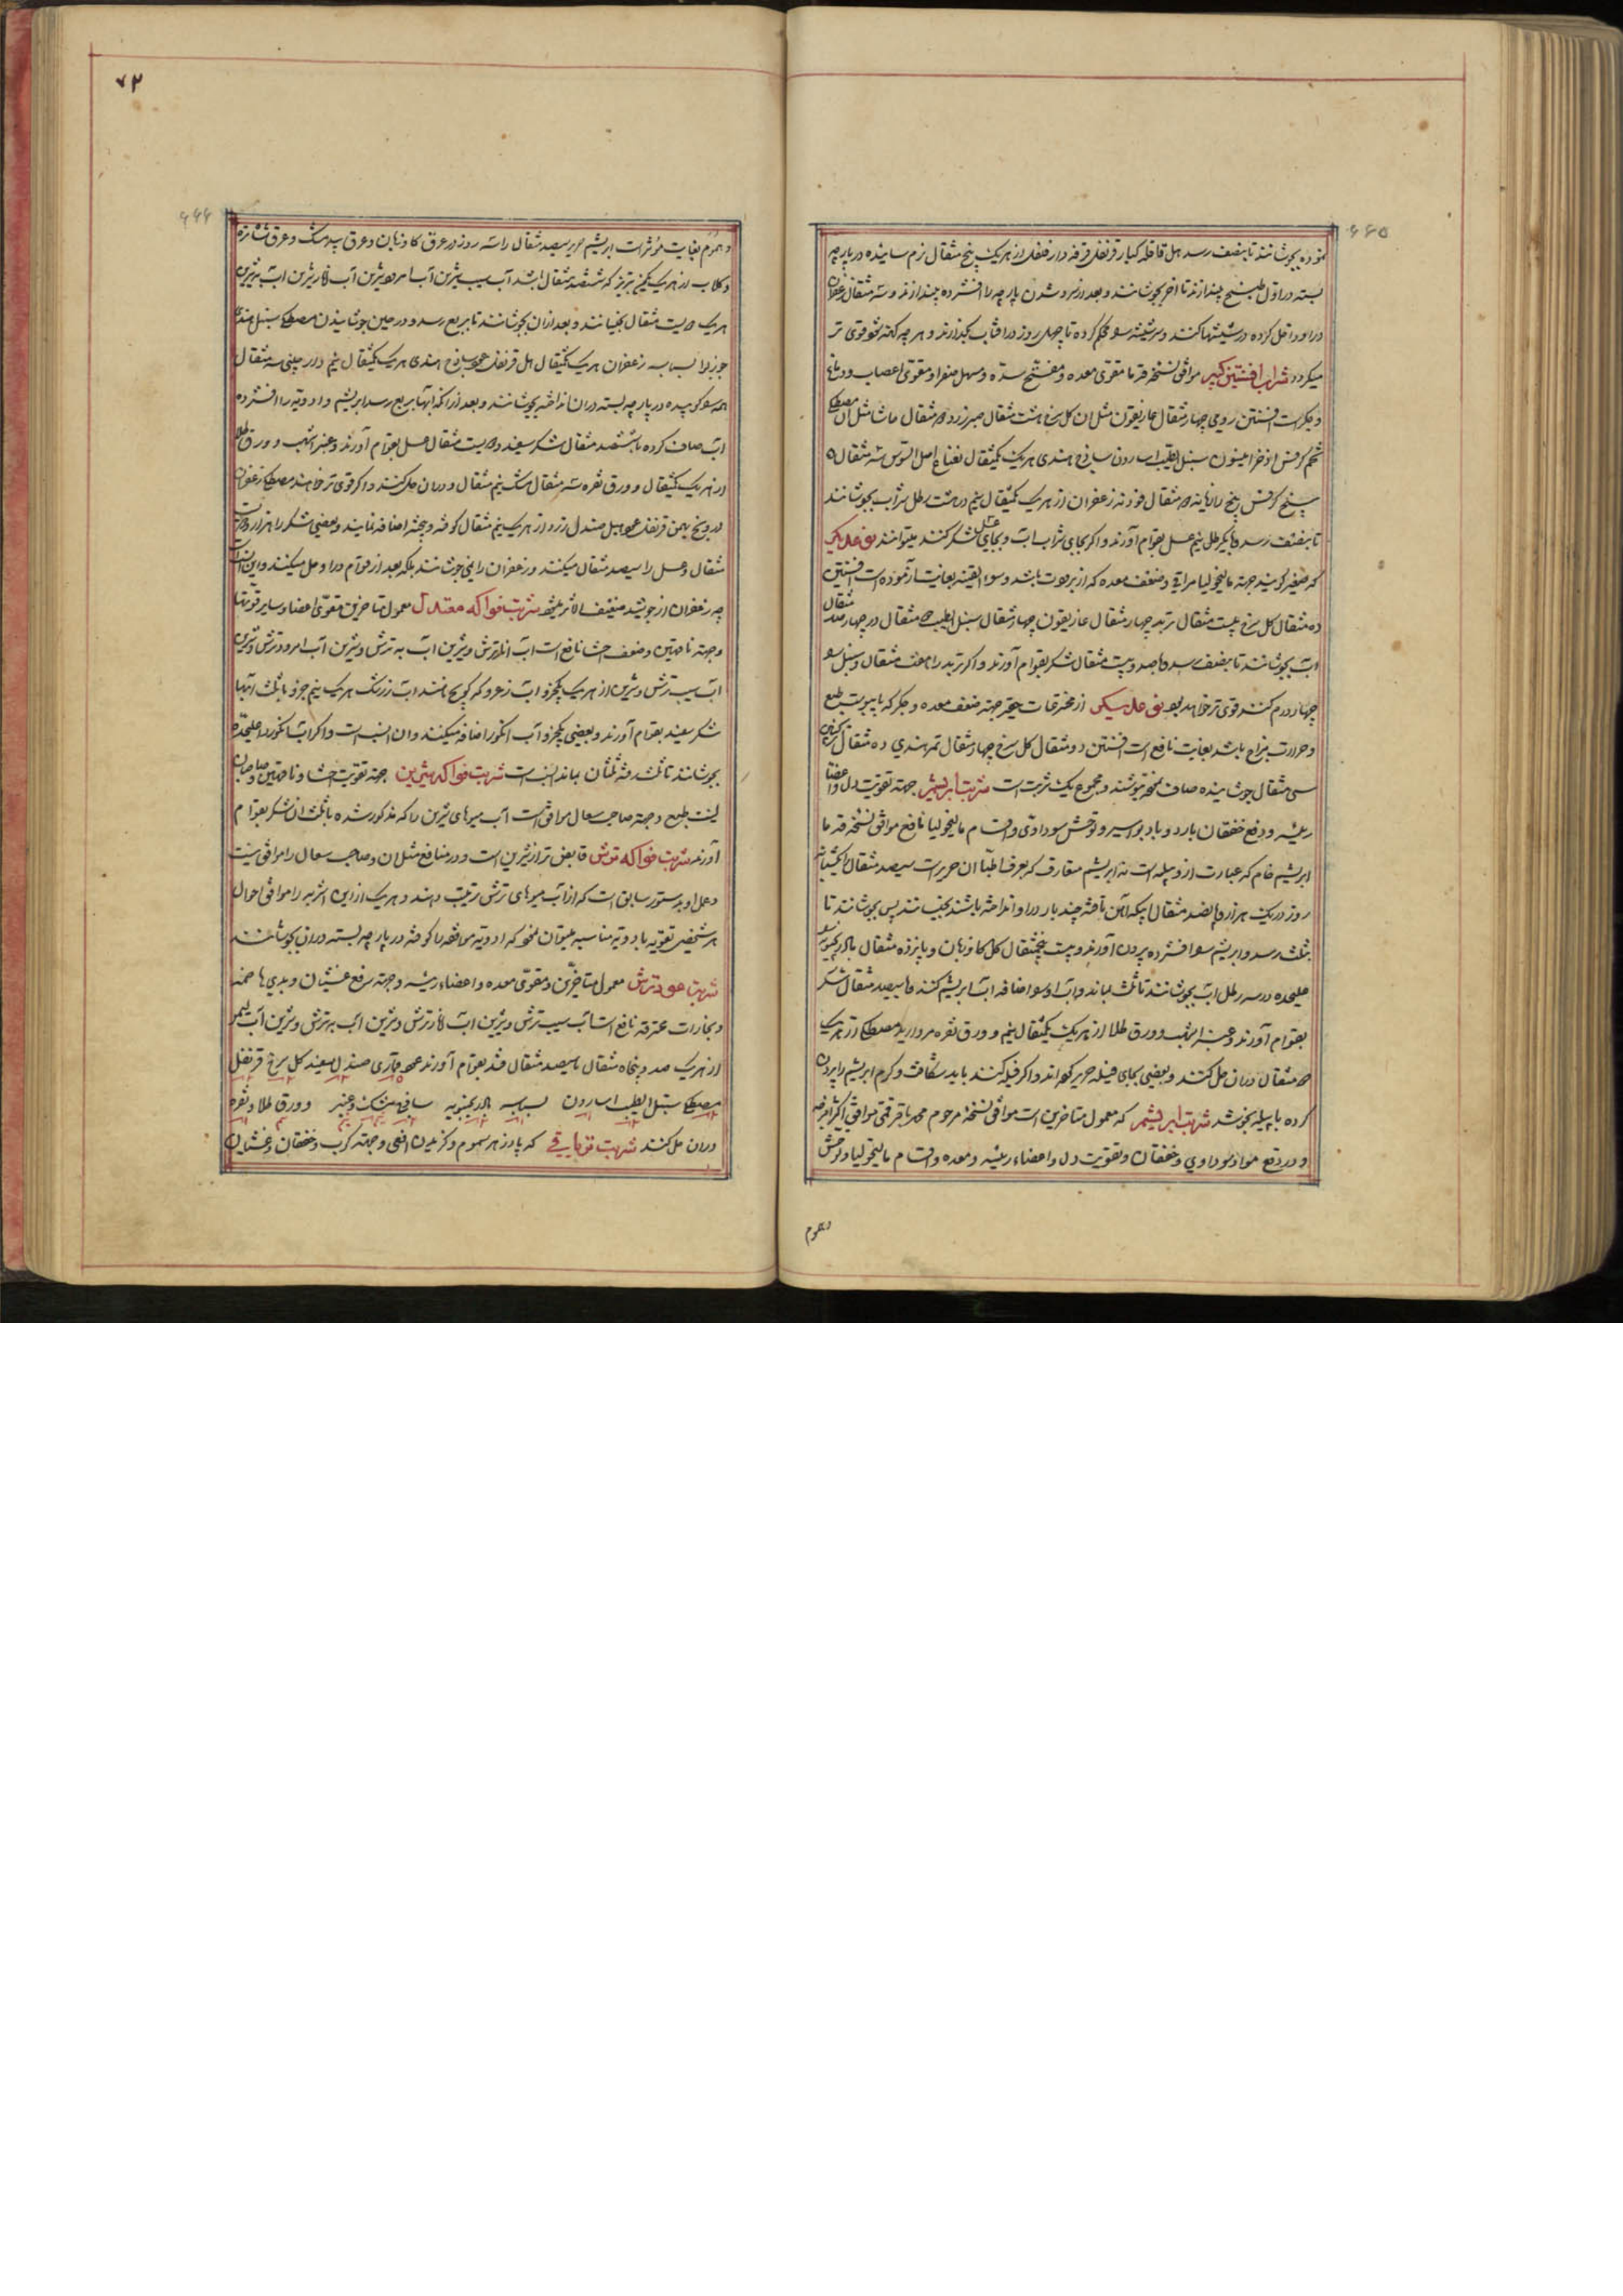 ۶۶۵
نموده بجوشانند تا بنصف رسد هل قاقله کبار قرنفل قرفه دارفلفل از هر یک پنج مثقال نرم سائیده در پارچه
بسته در اول طبخ بیندازند تا آخر بجوشانند و بعد از سرد شدن پارچه را افشرده بیندازند و سه مثقال زعفران
در او داخل کرده در شیشها کنند و سر شیشه محکم کرده تا چهل روز در آفتاب بگذارند و هر چه کهنه شود قوی تر
میگردد شراب افسنتین کبیر موافق نسخه قدما مقوی معده و مفتح سده و مسهل صفرا و مقوی اعصاب و دماغ
و جگر است افسنتین رومی چهار مثقال غاریقون مثل ان کل سرخ هشت مثقال صبر زرد مثقال مصطکی
تخم کرفس اذخر انیسون سنبل الطیب اسارون ساذج هندی هر یک یکمثقال نعناع اصل السوس سه مثقال
بیخ کرفس بیخ رازیانه مثقال فودنه زعفران از هر یک یکمثقال نیم در هشت رطل شراب بجوشانند
تا بنصف رسد با یکرطل نیم عسل بقوام آورند و اگر بجای شراب آب و بجای عسل شکر کنند میتوانند نوع دیگر
که صغیر گویند جهة مالیخولیا مراقی و ضعف معده که از برودت باشد و سوء القنیه بغایت آزموده است افسنتین
ده مثقال کل سرخ بیست مثقال تربد چهار مثقال غاریقون چهار مثقال سنبل الطیب مثقال در چهار صد مثقال
آب بجوشانند تا بنصف رسد با صد و بیست مثقال شکر بقوام آورند و اگر تربد را هفت مثقال و سنبل
چهار درم کنند قوی تر خواهد بود نوع دیگر از مخترعات حقیر جهة ضعف معده و جگر که با یبوست طبع
و حرارت مزاج باشد بغایت نافع است افسنتین دو مثقال کل سرخ چهار مثقال تمر هندی ده مثقال
سی مثقال جوشانیده صاف نموده بنوشند و مجموع یک شربت است شربت ابریشم جهة تقویت دل و اعضا
رئیسه و رفع خفقان بارد و باد بواسیر و توحش سوداوی و اقسام مالیخولیا نافع موافق نسخه قدما
ابریشم خام که عبارت از و پیله است نه ابریشم متعارف که بعرف اطبا ان حریر است سیصد مثقال یکشبانه
روز در یک هزار و پانصد مثقال آبیکه آهن تافته چند بار در او انداخته باشند بخیسانند پس بجوشانند تا
بثلث رسد و ابریشم افشرده بیرون آورند و بیست پنجمثقال کل کاوزبان و پانزده مثقال بادرنجبویه
علیحده در سه رطل آب بجوشانند تا ثلث بماند و آب او اضافه آب ابریشم کنند با سیصد مثقال شکر
بقوام آورند و عنبر اشهب و ورق طلا از هر یک یکمثقال نیم و ورق نقره مروارید مصطکی از هر یک
مثقال دران حل کنند و بعضی بجای پیله حریر کرده اند و اگر پیله کنند باید شکافت و کرم ابریشم را بیرون
کرده با پیله بجوشند شربت ابریشم که معمول متاخرین است موافق نسخه مرحوم محمد باقر قمی موافق اکثر امزجه
و در رفع مواد سوداوی و خفقان و تقویت دل و اعضاء رئیسه و معده و اقسام مالیخولیا و توحش
و هموم
۷۲
۶۶۶
و هموم بغایت مؤثر است ابریشم حریر سیصد مثقال را سه روز در عرق کاوزبان و عرق بیدمشک و عرق شاتره
و کلاب از هر یک یکمن تبریز که ششصد مثقال باشد آب سیب شیرین آب امرود شیرین آب انار شیرین آب به شیرین
هر یک دویست مثقال بخیسانند و بعد از ان بجوشانند تا بربع رسد و در حین جوشانیدن مصطکی سنبل هندی
جوزبوا بسباسه زعفران هر یک یکمثقال هل قرنفل عود ساذج هندی هر یک یکمثقال نیم دارچینی سه مثقال
همه کوبیده در پارچه بسته دران انداخته بجوشانند و بعد از انکه آبها بربع رسد ابریشم و ادویه را افشرده
آب صاف کرده با ششصد مثقال شکر سفید و دویست مثقال عسل بقوام آورند و عنبر اشهب و ورق طلا
از هر یک یکمثقال و ورق نقره سه مثقال مشک نیم مثقال و دران حل کنند و اگر قوی تر خواهند مصطکی زعفران
درونج بهمن قرنفل عود هیل صندل زرد از هر یک نیم مثقال کوفته و بیخته اضافه نمایند و بعضی شکر را هزار و دویست
مثقال و عسل را سیصد مثقال میکنند و زعفران را نمی جوشانند بلکه بعد از قوام در او حل میکنند و این انسب است
چه زعفران از جوشیدن ضعیف الاثر میشود شربت فواکه معتدل معمول متاخرین مقوی اعضا و سایر قوتها
وجهة ناقهین و ضعف احشا نافع است آب انار ترش و شیرین آب به ترش و شیرین آب امرود ترش و شیرین
آب سیب ترش و شیرین از هر یک یکجزو آب زعرور که کویج نامند آب زرشک هر یک نیم جزو با ثلث آنها
شکر سفید بقوام آورند و بعضی یکجزو آب انکور اضافه میکنند و ان انسب است و اگر آب انکور را علیحده
بجوشانند تا ثلث رفته ثلثان بماند انسب است شربت فواکه شیرین جهة تقویت احشا و ناقهین و صاحبان
لینت طبع و جهة صاحب سعال موافق است آب میوهای شیرین را که مذکور شده با ثلث ان شکر بقوام
آورند شربت فواکه ترش قابض تر از شیرین است و در منافع مثل ان و صاحب سعال را موافق نیست
و عمل او بدستور سابق است که از آب میوهای ترش ترتیب دهند و هر یک از این اشربه را موافق احوال
هر شخص تقویه بادویه مناسبه میتوان نمود که ادویه موافقه را کوفته در پارچه بسته دران بجوشانند
شربت عود ترش معمول متاخرین و مقوی معده و اعضاء رئیسه و جهة رفع غثیان و بدی هاضمه
و بخارات محترقه نافع است آب سیب ترش و شیرین آب انار ترش و شیرین آب به ترش و شیرین آب لیمو
از هر یک صد و پنجاه مثقال با سیصد مثقال قند بقوام آورند عود قماری صندل سفید کل سرخ قرنفل
مصطکی سنبل الطیب اسارون بسباسه بادرنجبویه ساذج مشک و عنبر و ورق طلا و نقره
دران حل کنند شربت تریاقی که پادزهر سموم و گزیدن افعی و جهة کرب و خفقان و غشیان